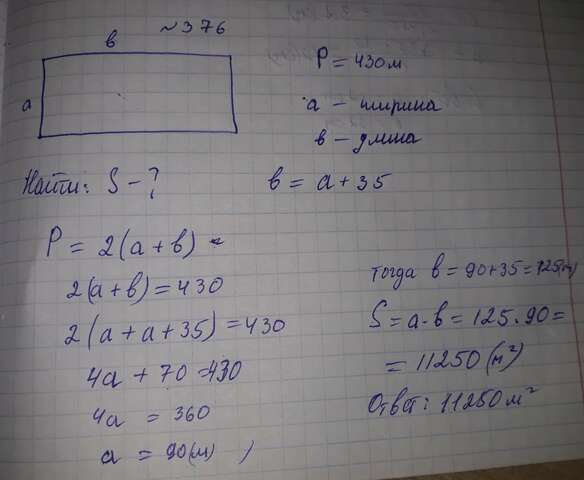 №376
в
а
P = 430м
а - ширина
в - длина
Найти: S - ?
в = а + 35
P = 2(а + в)
2(а + в) = 430
2(а + а + 35) = 430
4а + 70 = 430
4а = 360
а = 90(м)
тогда в = 90+35=125(м)
S = а·в = 125·90=
= 11250(м²)
Ответ: 11250м²